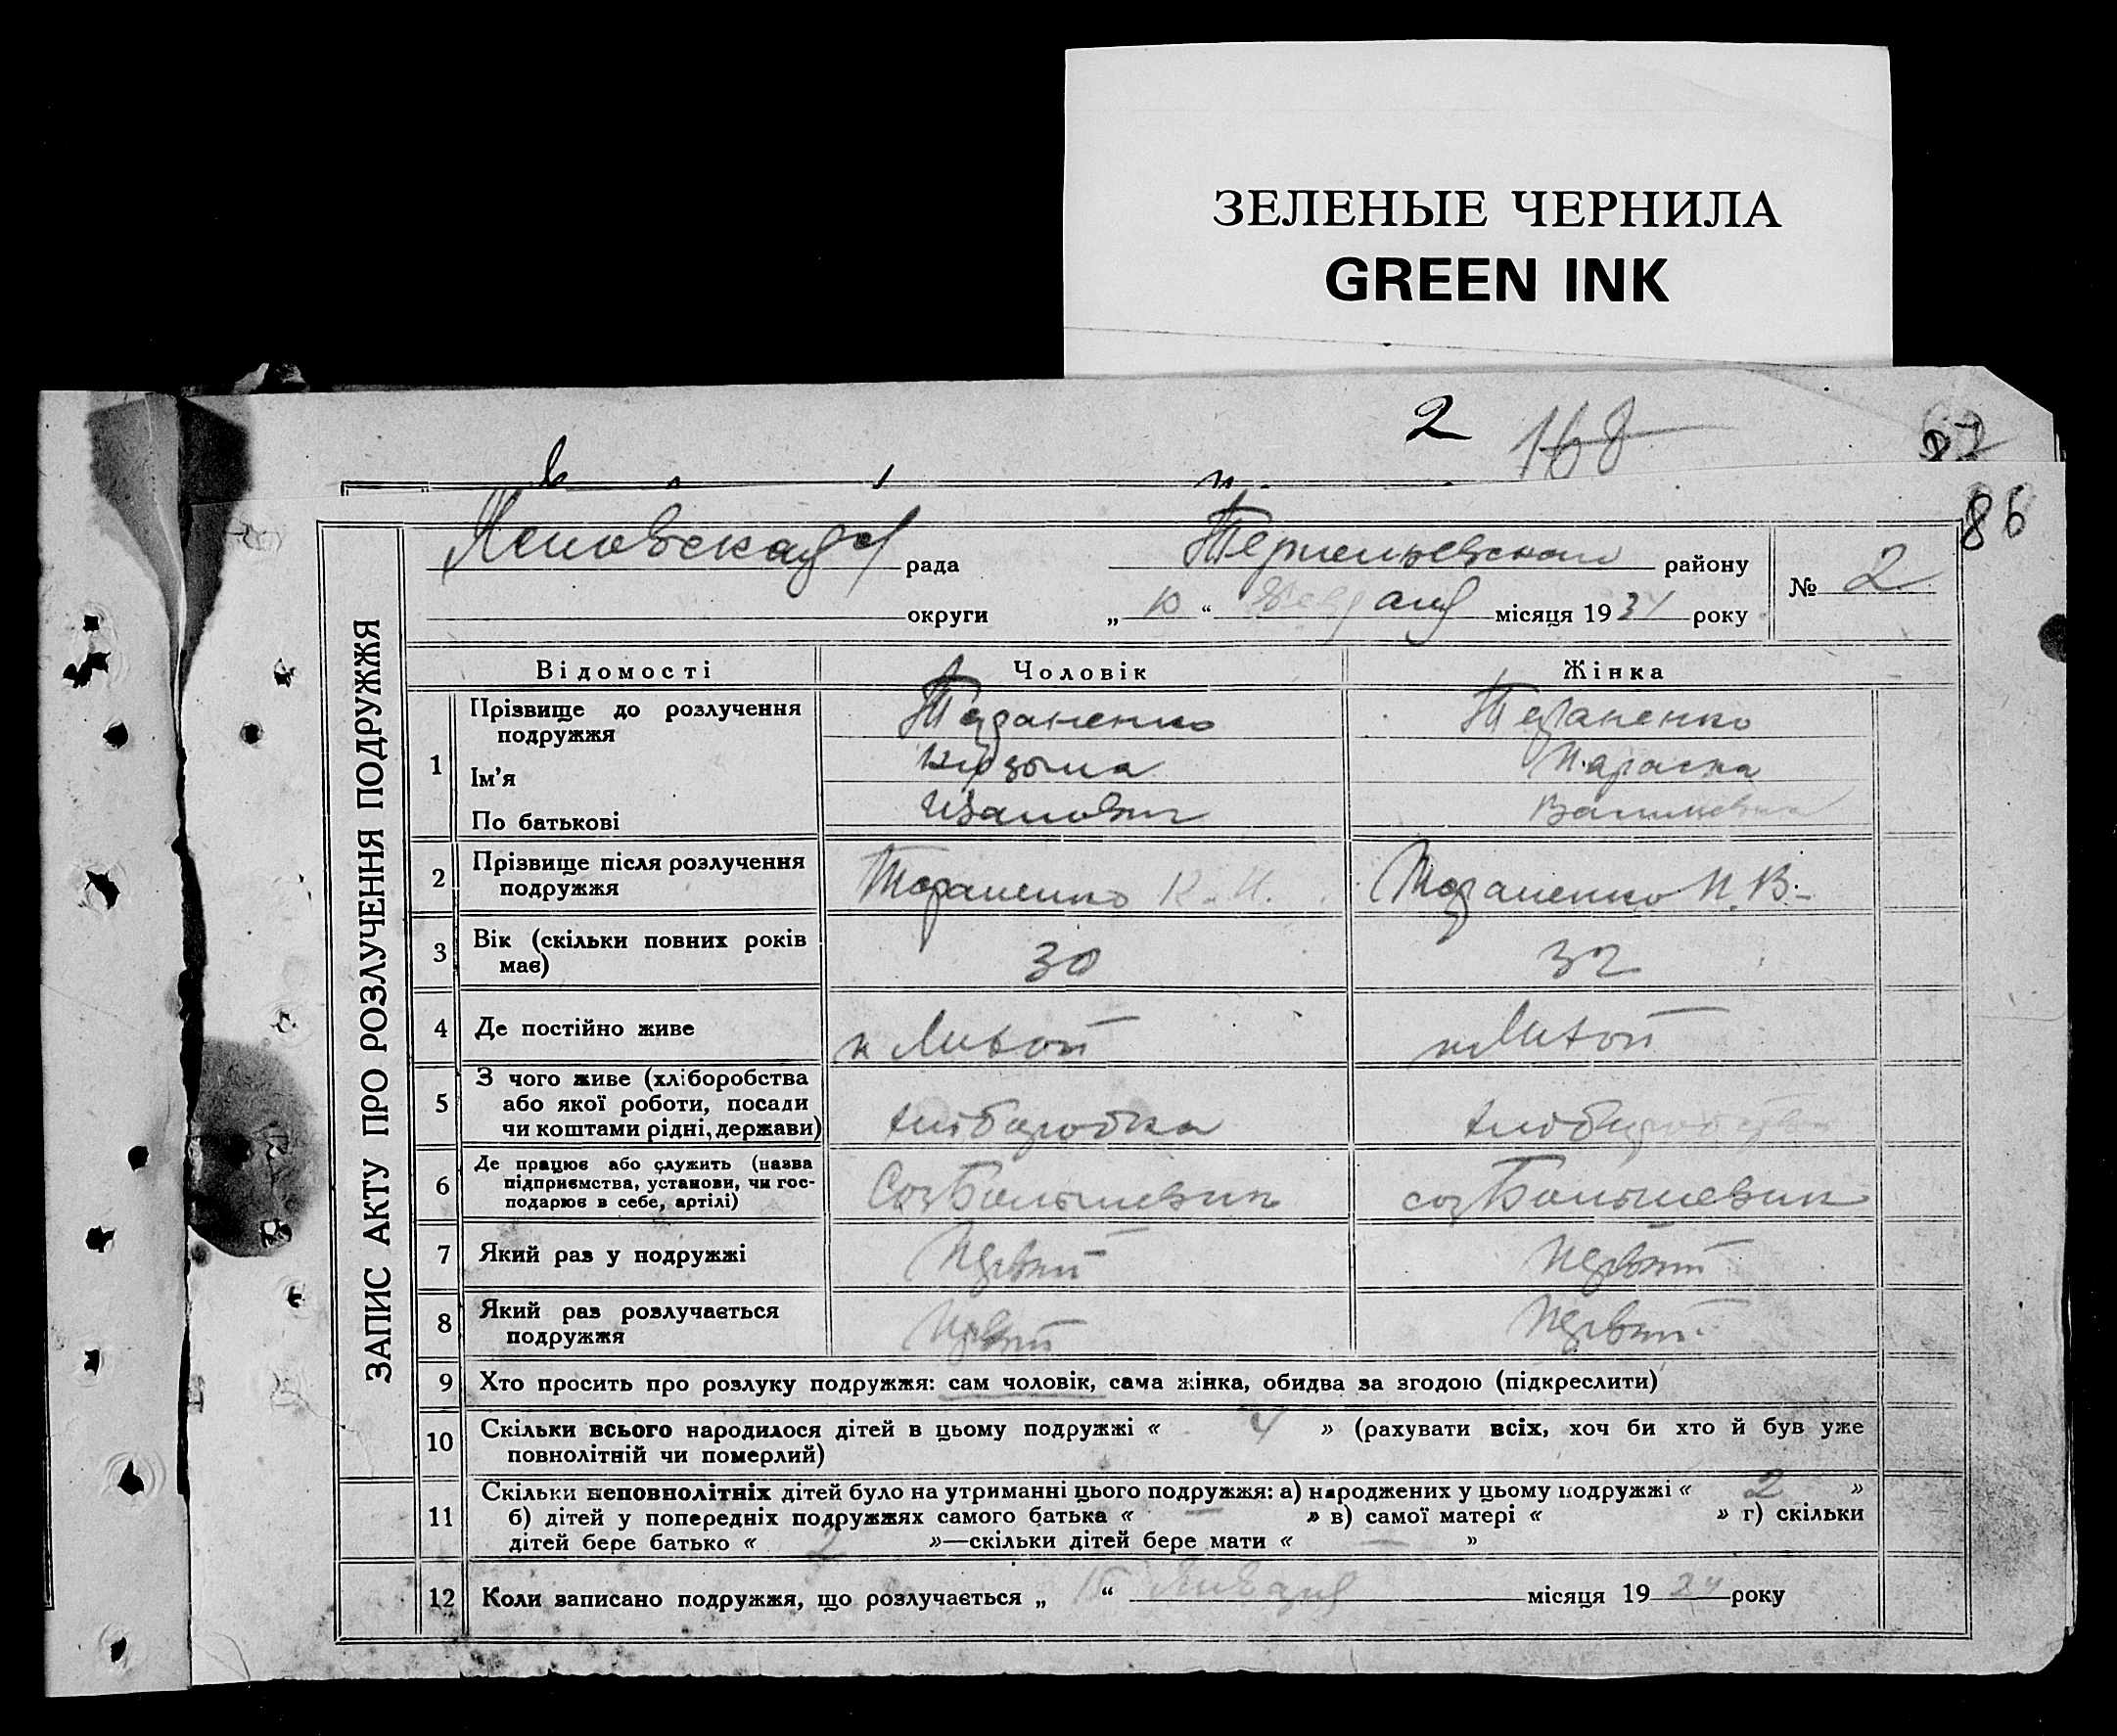 ЗЕЛЕНЫЕ ЧЕРНИЛА
GREEN INK
2 168
86
ЗАПИС АКТУ ПРО РОЗЛУЧЕННЯ ПОДРУЖЖЯ
рада району № 2
округи „ 10 “ місяця 1934 року
Відомості Чоловік Жінка
1 Прізвище до розлучення подружжя Тараненко Тараненко
Ім'я Кузьма Параска
По батькові Иванович
2 Прізвище після розлучення подружжя Тараненко К. И. Тараненко П. В.
3 Вік (скільки повних років має) 30 32
4 Де постійно живе
5 З чого живе (хліборобства або якої роботи, посади чи коштами рідні, держави)
6 Де працює або служить (назва підприємства, установи, чи господарює в себе, артілі) Соз Большевик соз Большевик
7 Який раз у подружжі Первий Первий
8 Який раз розлучається подружжя Первий Первий
9 Хто просить про розлуку подружжя: сам чоловік, сама жінка, обидва за згодою (підкреслити)
10 Скільки всього народилося дітей в цьому подружжі « 4 » (рахувати всіх, хоч би хто й був уже
повнолітній чи померлий)
11 Скільки неповнолітніх дітей було на утриманні цього подружжя: а) народжених у цьому подружжі « 2 »
б) дітей у попередніх подружжях самого батька « — » в) самої матері « » г) скільки
дітей бере батько « 2 »—скільки дітей бере мати « — »
12 Коли записано подружжя, що розлучається „ 15 “ Января місяця 1924 року